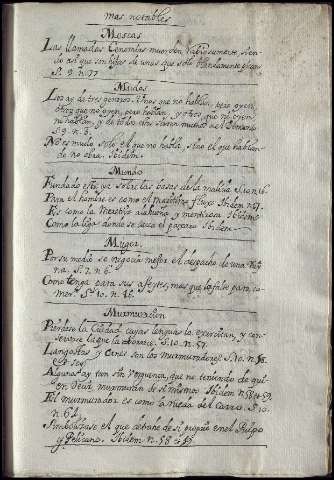 mas notables
Moscas
Las llamadas Cenomias muerden rabiosamente, sien-
do asi que son hijas de unas que solo blandamente pican
S. 9. n. 77
Mudos
Los ay de tres generos. Unos que no hablan, pero oyen,
otros que no oyen, pero hablan, y otros que ni oyen
ni hablan, y de todos
S. 9. n. 3.
No es mudo solo el que no habla, sino el que hablan-
do no obra. Ibidem.
Mundo
Fundado està sobre las basas de la malicia S. 10. n. 16
Para el hombre es como el fluxo Ibidem n. 47.
Es como la Meretriz alahueña y mentirosa Ibidem
Como la liga donde se el paxaro Ibidem.
Muger
Por su medio se negocia mejor el despacho de una
S. 7. n. 6.
Como tenga para sus afeytes, mas que le falte para co-
mer. S. 10. n. 48.
Murmuracion
Pierdese la Ciudad cuyas lenguas la exercitan, y con-
servase la que la aborrece. S. 10. n. 57.
Langostas y Canes son los murmuradores S. 10. n.
Algunos ay tan sin verguenza, que no teniendo de qui-
en decir murmuran de si mismos Ibidem n. 58 et 59.
El murmurador es como la rueda del Carro S. 10.
n. 61.
Simbolizase el que de si propio en el Pulpo
y Pelicano. Ibidem n. 58 et 59.